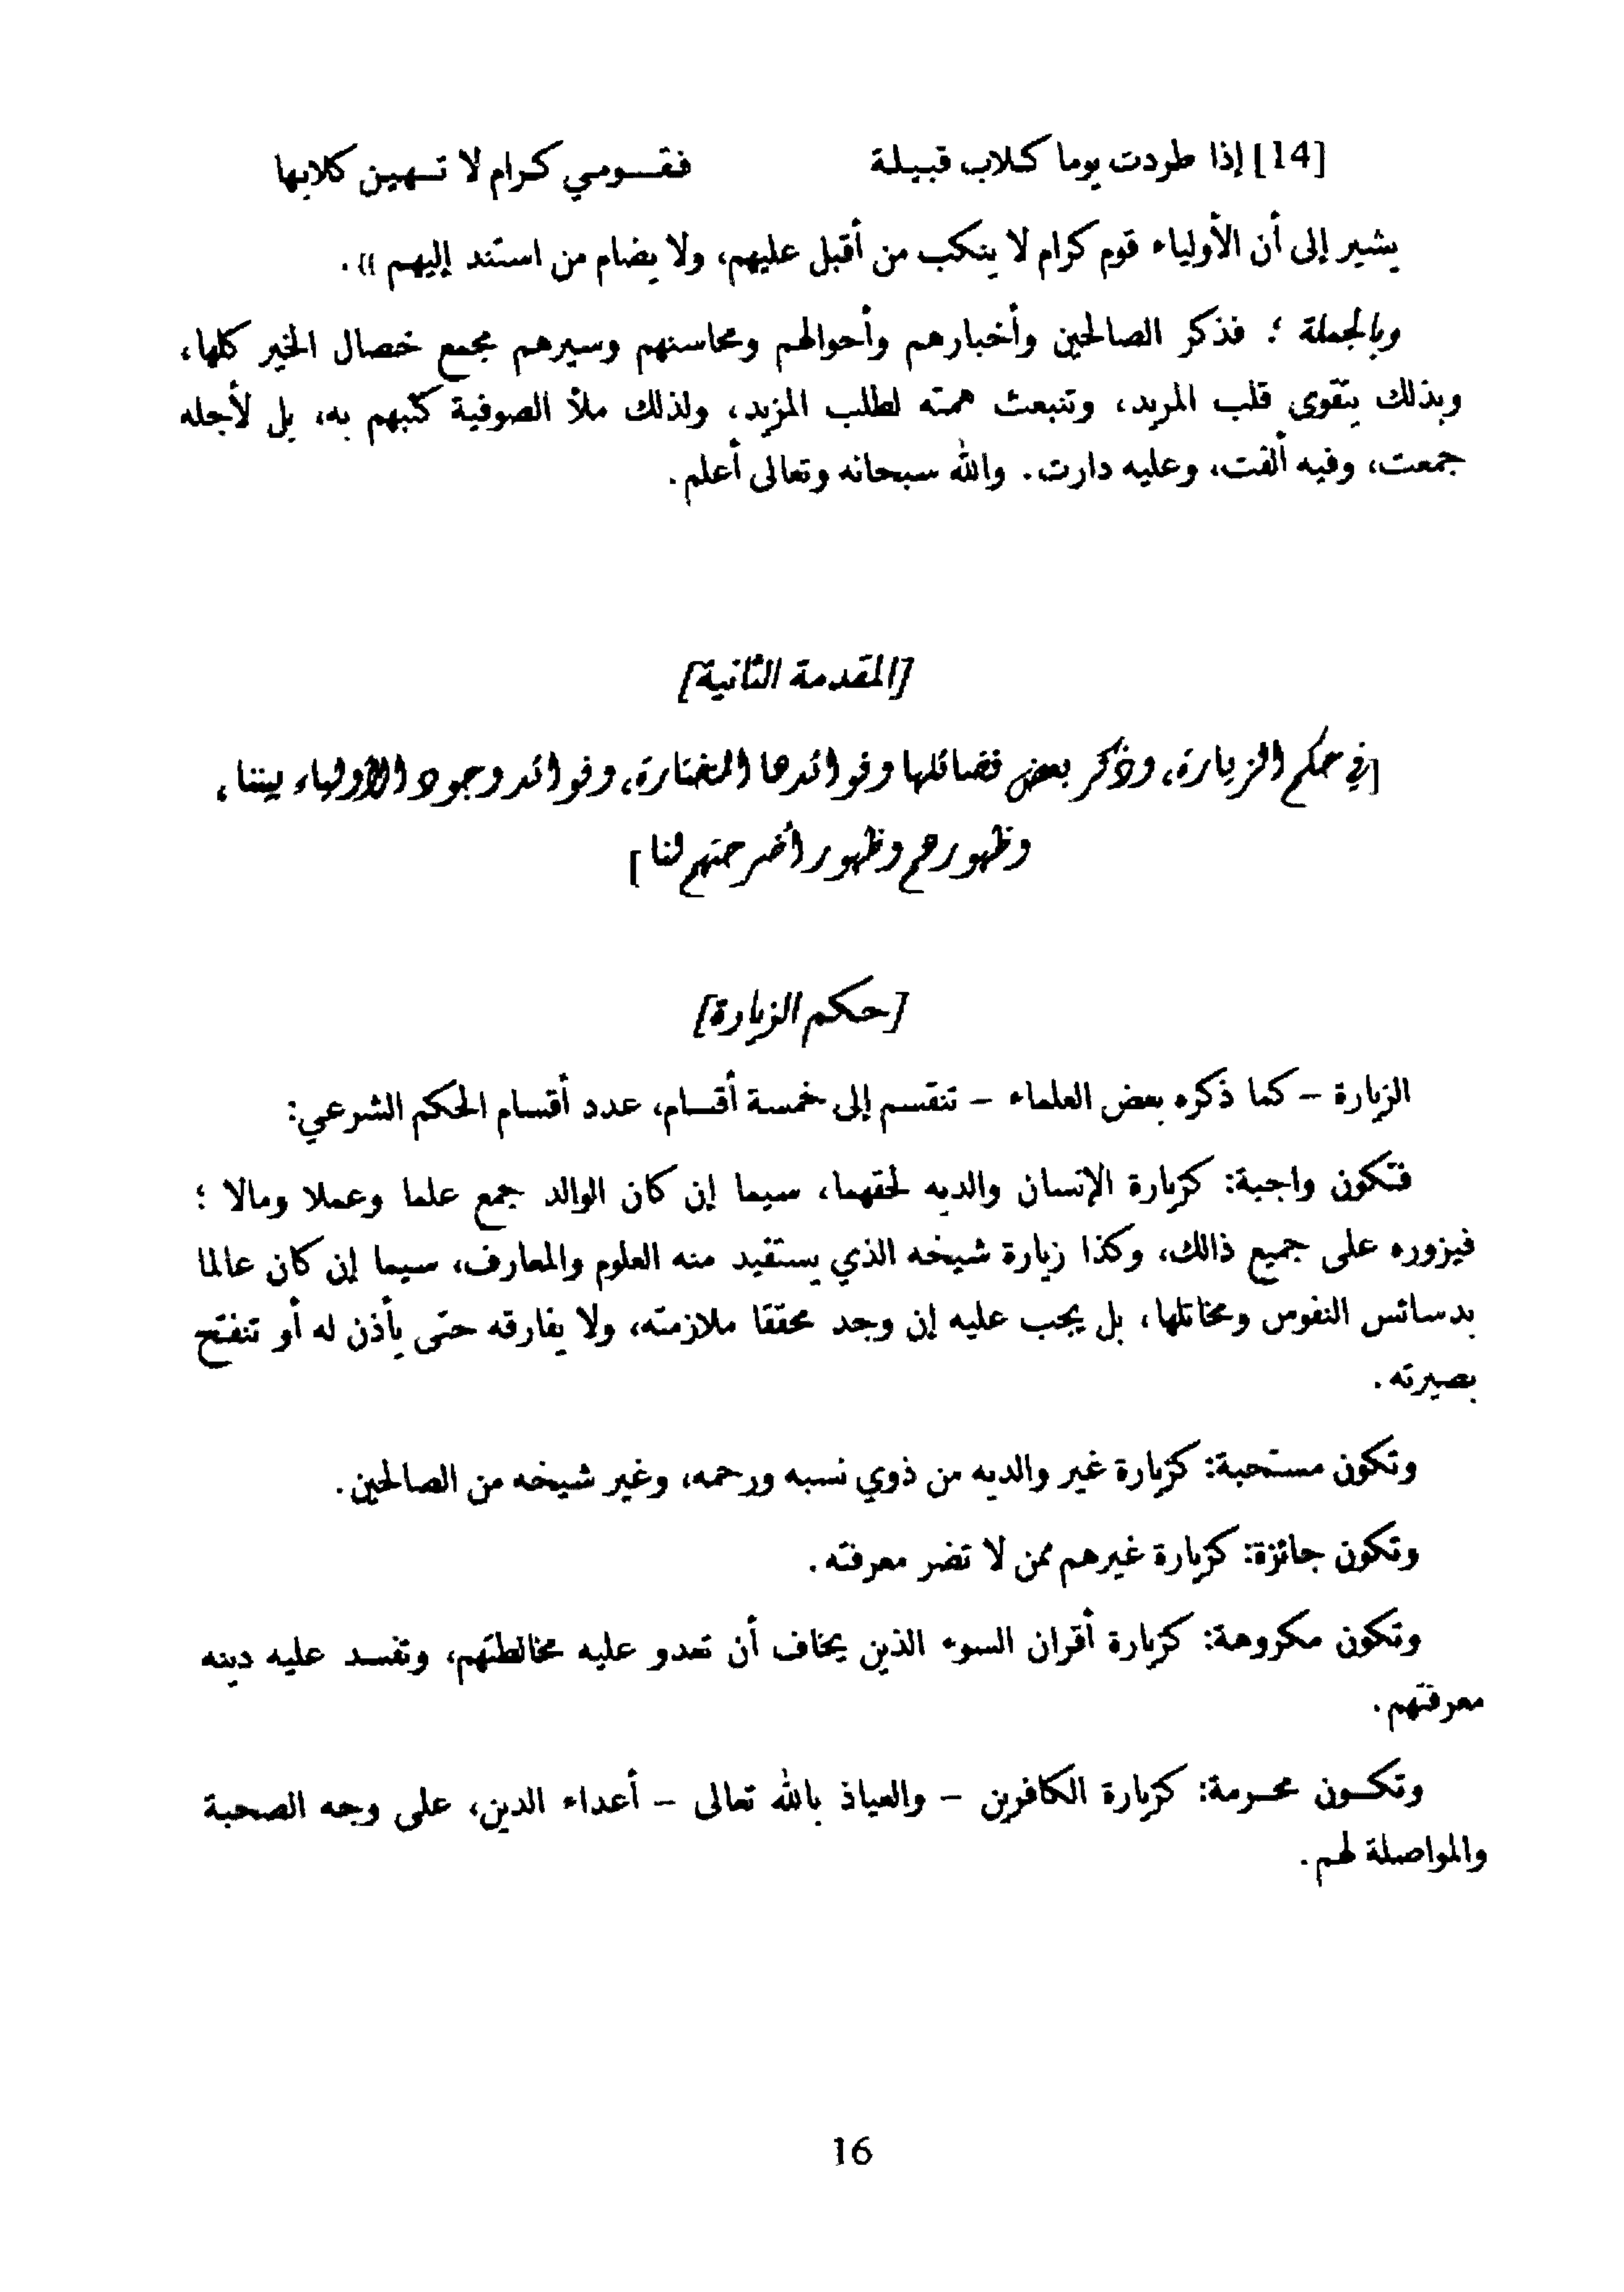 [14] إذا طردت يوما كلاب قبيلة فقومي كرام لا تهين كلابها
يشير إلى أن الأولياء قوم كرام لا ينكب من أقبل عليهم، ولا يضام من استند إليهم )).
وبالجملة ؛ فذكر الصالحين وأخبارهم وأحوالهم ومحاسنهم وسيرهم مجمع خصال الخير كلها،
وبذلك يتقوى قلب المريد، وتنبعث همته لطلب المزيد، ولذلك ملأ الصوفية كتبهم به، بل لأجله
جمعت، وفيه ألفت، وعليه دارت. والله سبحانه وتعالى أعلم.
[المقدمة الثانية]
[في حكم الزيارة، وذكر بعض فضائلها وفوائدها المختارة، وفوائد وجود الأولياء بيننا،
وظهورهم وظهور أضرحتهم لنا]
[حكم الزيارة]
الزيارة - كما ذكره بعض العلماء - تنقسم إلى خمسة أقسام، عدد أقسام الحكم الشرعي:
فتكون واجبة: كزيارة الإنسان والديه لحقهما، سيما إن كان الوالد جمع علما وعملا ومالا ؛
فيزوره على جميع ذالك، وكذا زيارة شيخه الذي يستفيد منه العلوم والمعارف، سيما إن كان عالما
بدسائس النفوس ومخاتلها، بل يجب عليه إن وجد محققا ملازمته، ولا يفارقه حتى يأذن له أو تنفتح
بصيرته.
وتكون مستحبة: كزيارة غير والديه من ذوي نسبه ورحمه، وغير شيخه من الصالحين.
وتكون جائزة: كزيارة غيرهم ممن لا تضر معرفته.
وتكون مكروهة: كزيارة أقران السوء الذين يخاف أن تعدو عليه مخالطتهم، وتفسد عليه دينه
معرفتهم.
وتكون محرمة: كزيارة الكافرين - والعياذ بالله تعالى - أعداء الدين، على وجه الصحبة
والمواصلة لهم.
16